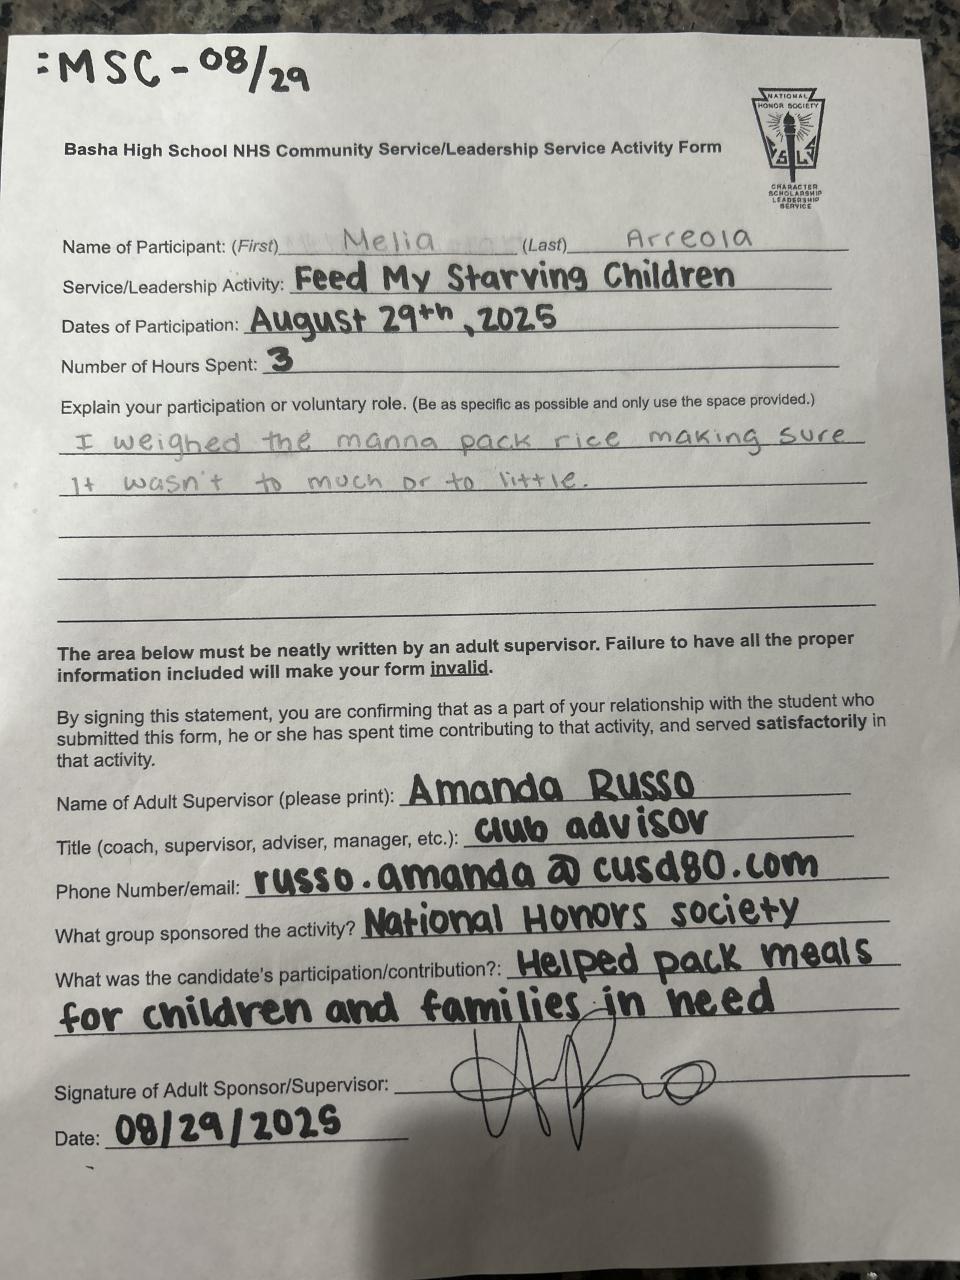 :MSC - 08/29
NATIONAL
HONOR SOCIETY
CHARACTER
SCHOLARSHIP
LEADERSHIP
SERVICE
Basha High School NHS Community Service/Leadership Service Activity Form
Name of Participant: (First) Melia (Last) Arreola
Service/Leadership Activity: Feed My Starving Children
Dates of Participation: August 29th, 2025
Number of Hours Spent: 3
Explain your participation or voluntary role. (Be as specific as possible and only use the space provided.)
I weighed the manna pack rice making sure
it wasn't to much or to little.
The area below must be neatly written by an adult supervisor. Failure to have all the proper
information included will make your form invalid.
By signing this statement, you are confirming that as a part of your relationship with the student who
submitted this form, he or she has spent time contributing to that activity, and served satisfactorily in
that activity.
Name of Adult Supervisor (please print): Amanda Russo
Title (coach, supervisor, adviser, manager, etc.): club advisor
Phone Number/email: russo.amanda@cusd80.com
What group sponsored the activity? National Honors society
What was the candidate's participation/contribution?: Helped pack meals
for children and families in need
Signature of Adult Sponsor/Supervisor:
Date: 08/29/2025